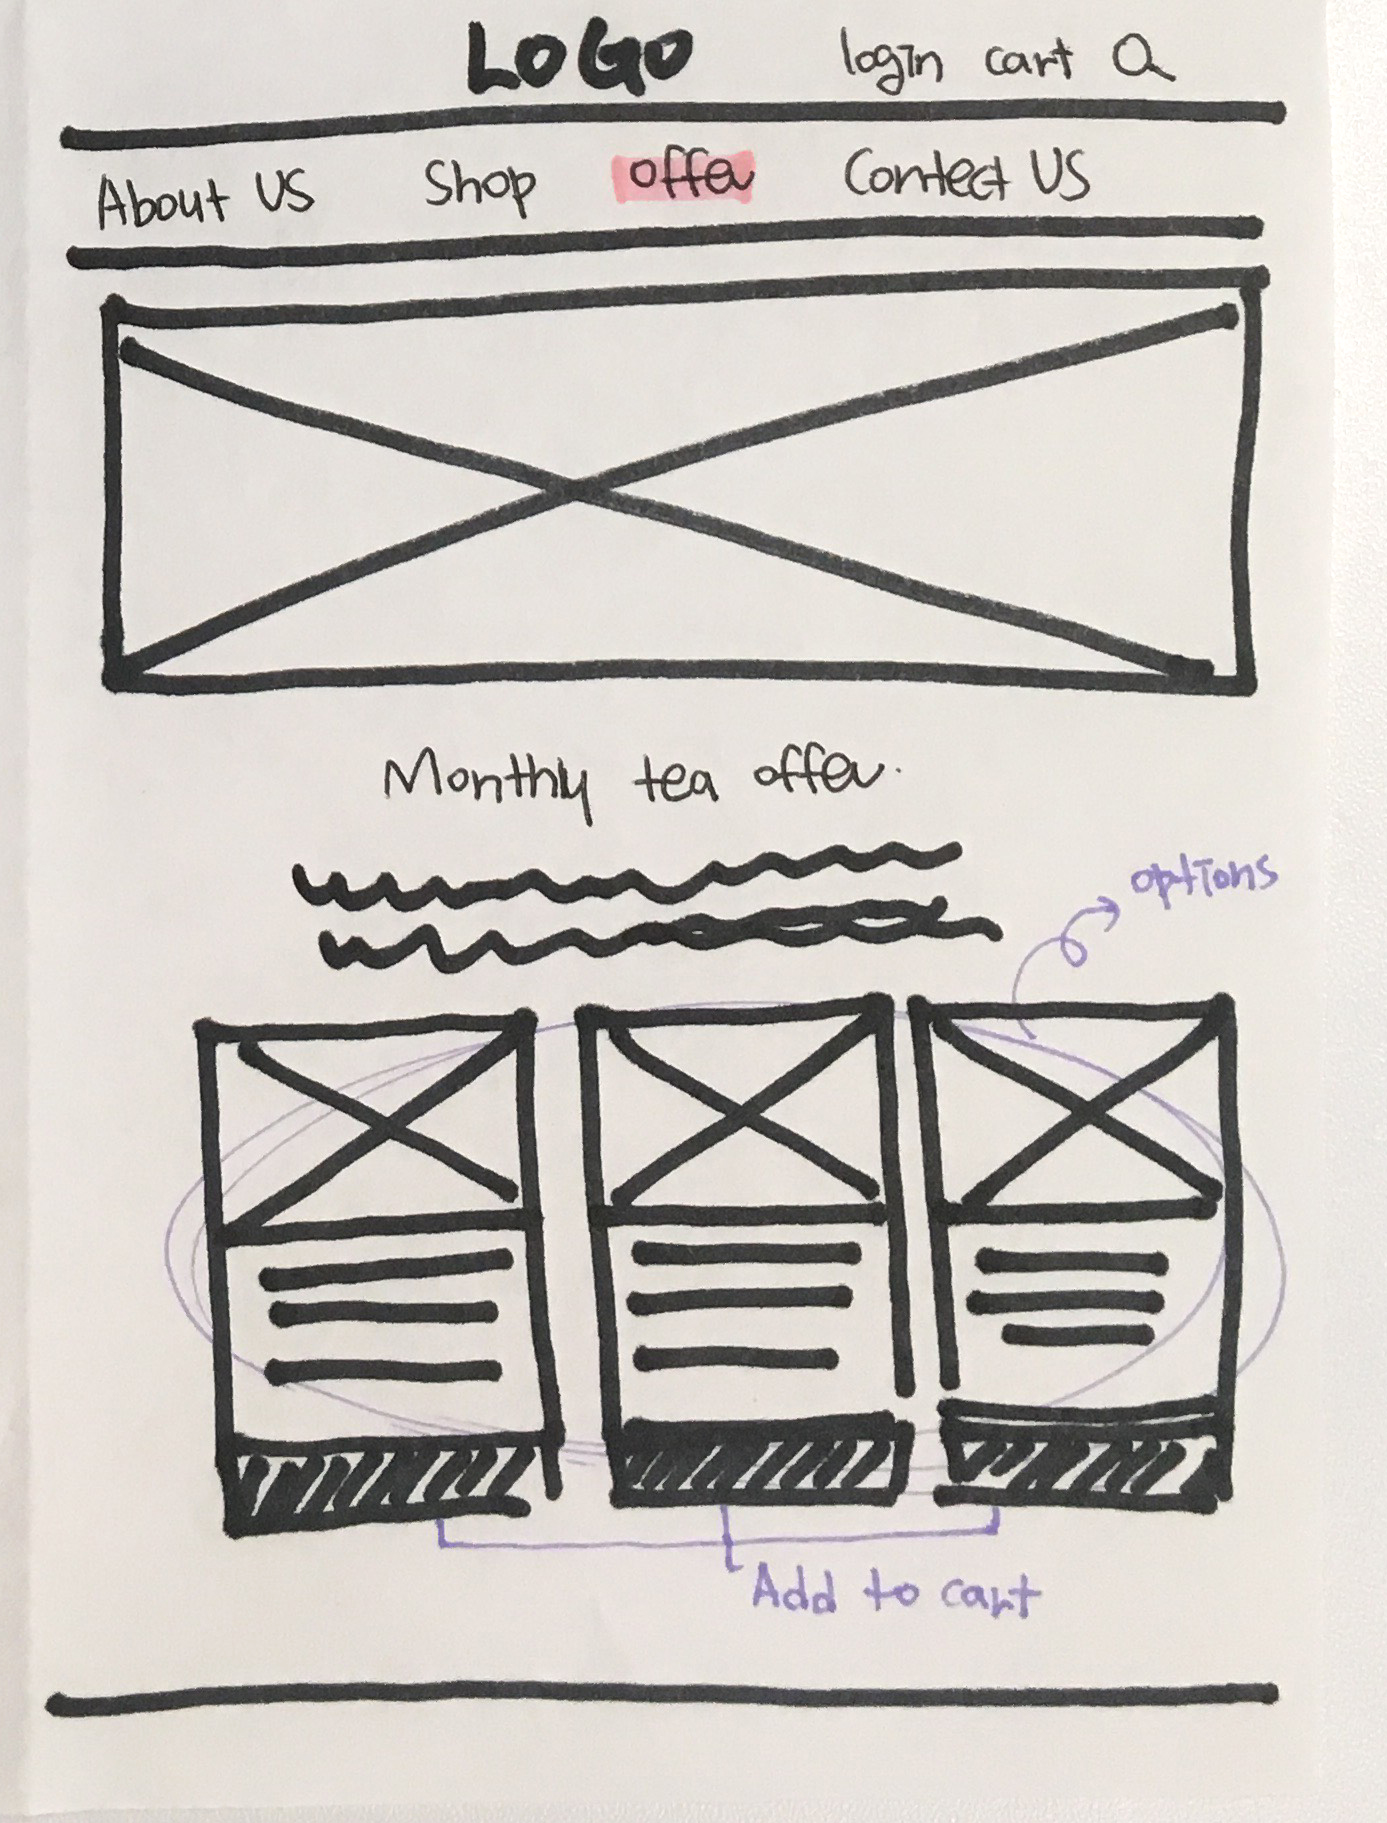 LOGO login cart
About US Shop offer Contect US
Monthly tea offer.
options
Add to cart